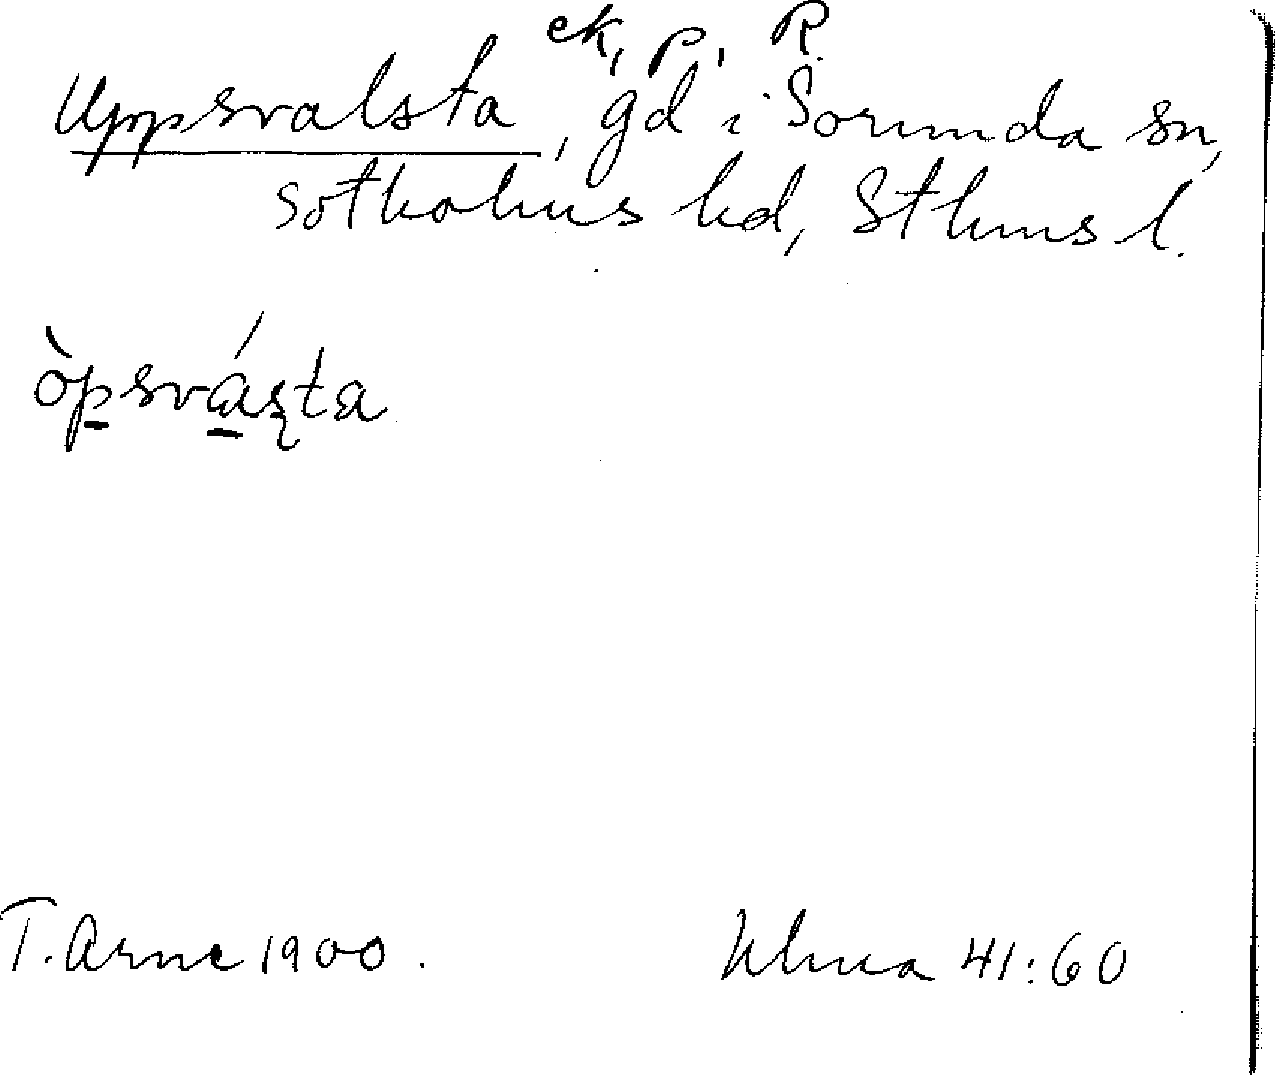 ek, p, R.
Uppsvalsta, gd i Sorunda sn,
Sotholms hd, Sthms l.
òpsvásta
T. Arne 1900.
Ulma 41:60